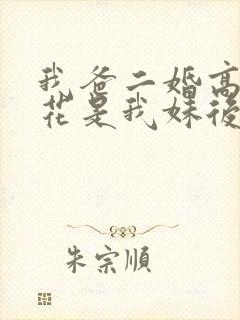 我爸二婚高
花是我妹後
朱宗順